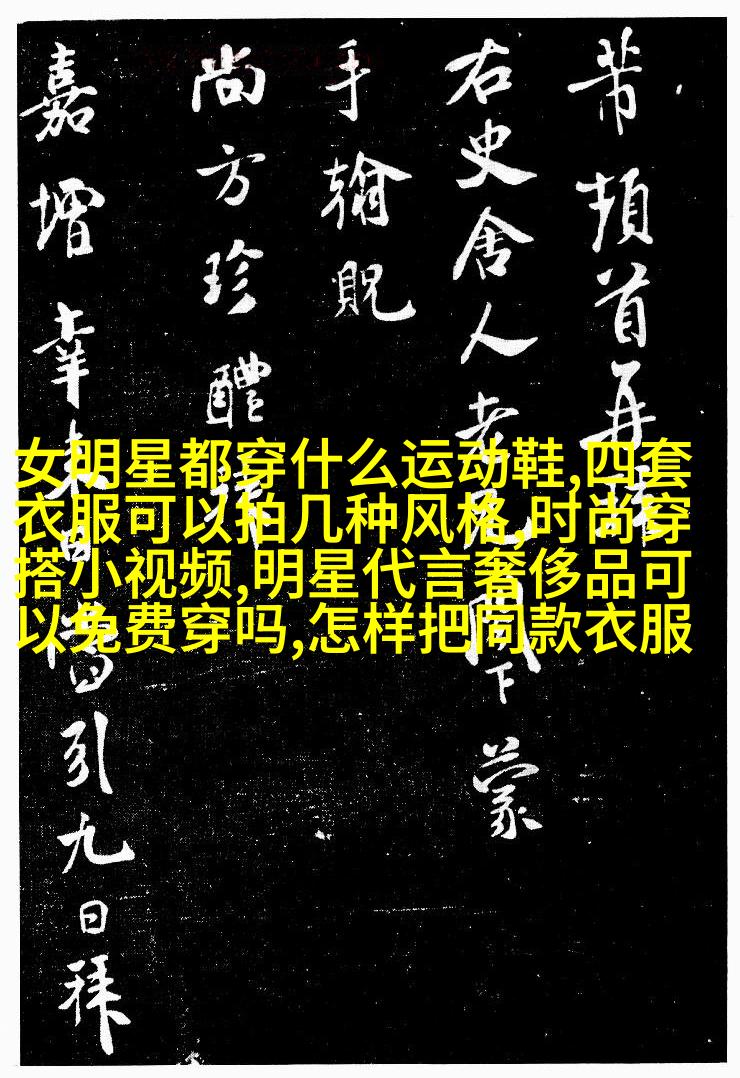 芾頓首再拜
右史舍人老兄閣下蒙
手翰貺
尚方珍醴拜
嘉增幸來日當引九日拜
女明星都穿什么运动鞋,四套
衣服可以拍几种风格,时尚穿
搭小视频,明星代言奢侈品可
以免费穿吗,怎样把同款衣服